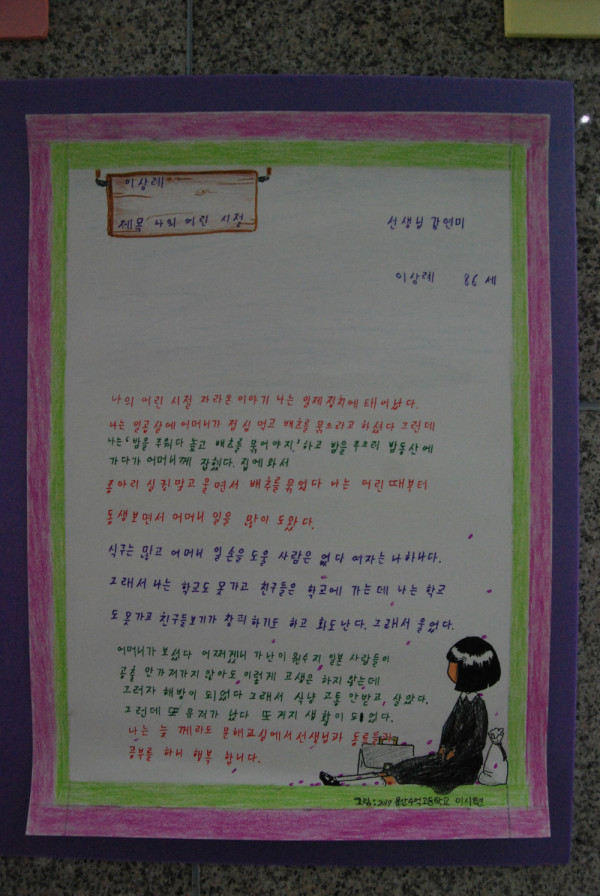 이상례
제목 나의 어린 시절
선생님 강연미
이상례 86세
나의 어린 시절 자라온 이야기 나는 일제정치에 태어났다.
나는 일곱살에 어머니가 점심 먹고 배추를 묶으라고 하셨다 그런데
나는 '밤을 주워다 놓고 배추를 묶어야지.' 하고 밤을 주으러 밤동산에
가다가 어머니께 잡혔다. 집에와서
종아리 실컷맞고 울면서 배추를 묶었다 나는 어린때부터
동생보면서 어머니 일을 많이 도왔다.
식구는 많고 어머니 일손을 도울 사람은 없다 여자는 나하나다.
그래서 나는 학교도 못가고 친구들은 학교에 가는데 나는 학교
도 못가고 친구들보기가 창피하기도 하고 화도난다. 그래서 울었다.
어머니가 보셨다 어쩌겠니 가난이 원수지 일본 사람들이
공출 안가져가지 않아도 이렇게 고생은 하지않는데
그러자 해방이 되었다 그래서 식량 고통 안받고, 살았다.
그런데 또 육저가 났다 또 거지 생활이 되었다.
나는 늦께라도 문해교실에서 선생님과 동료들과
공부를 하니 행복 합니다.
그림: 2017 이시현